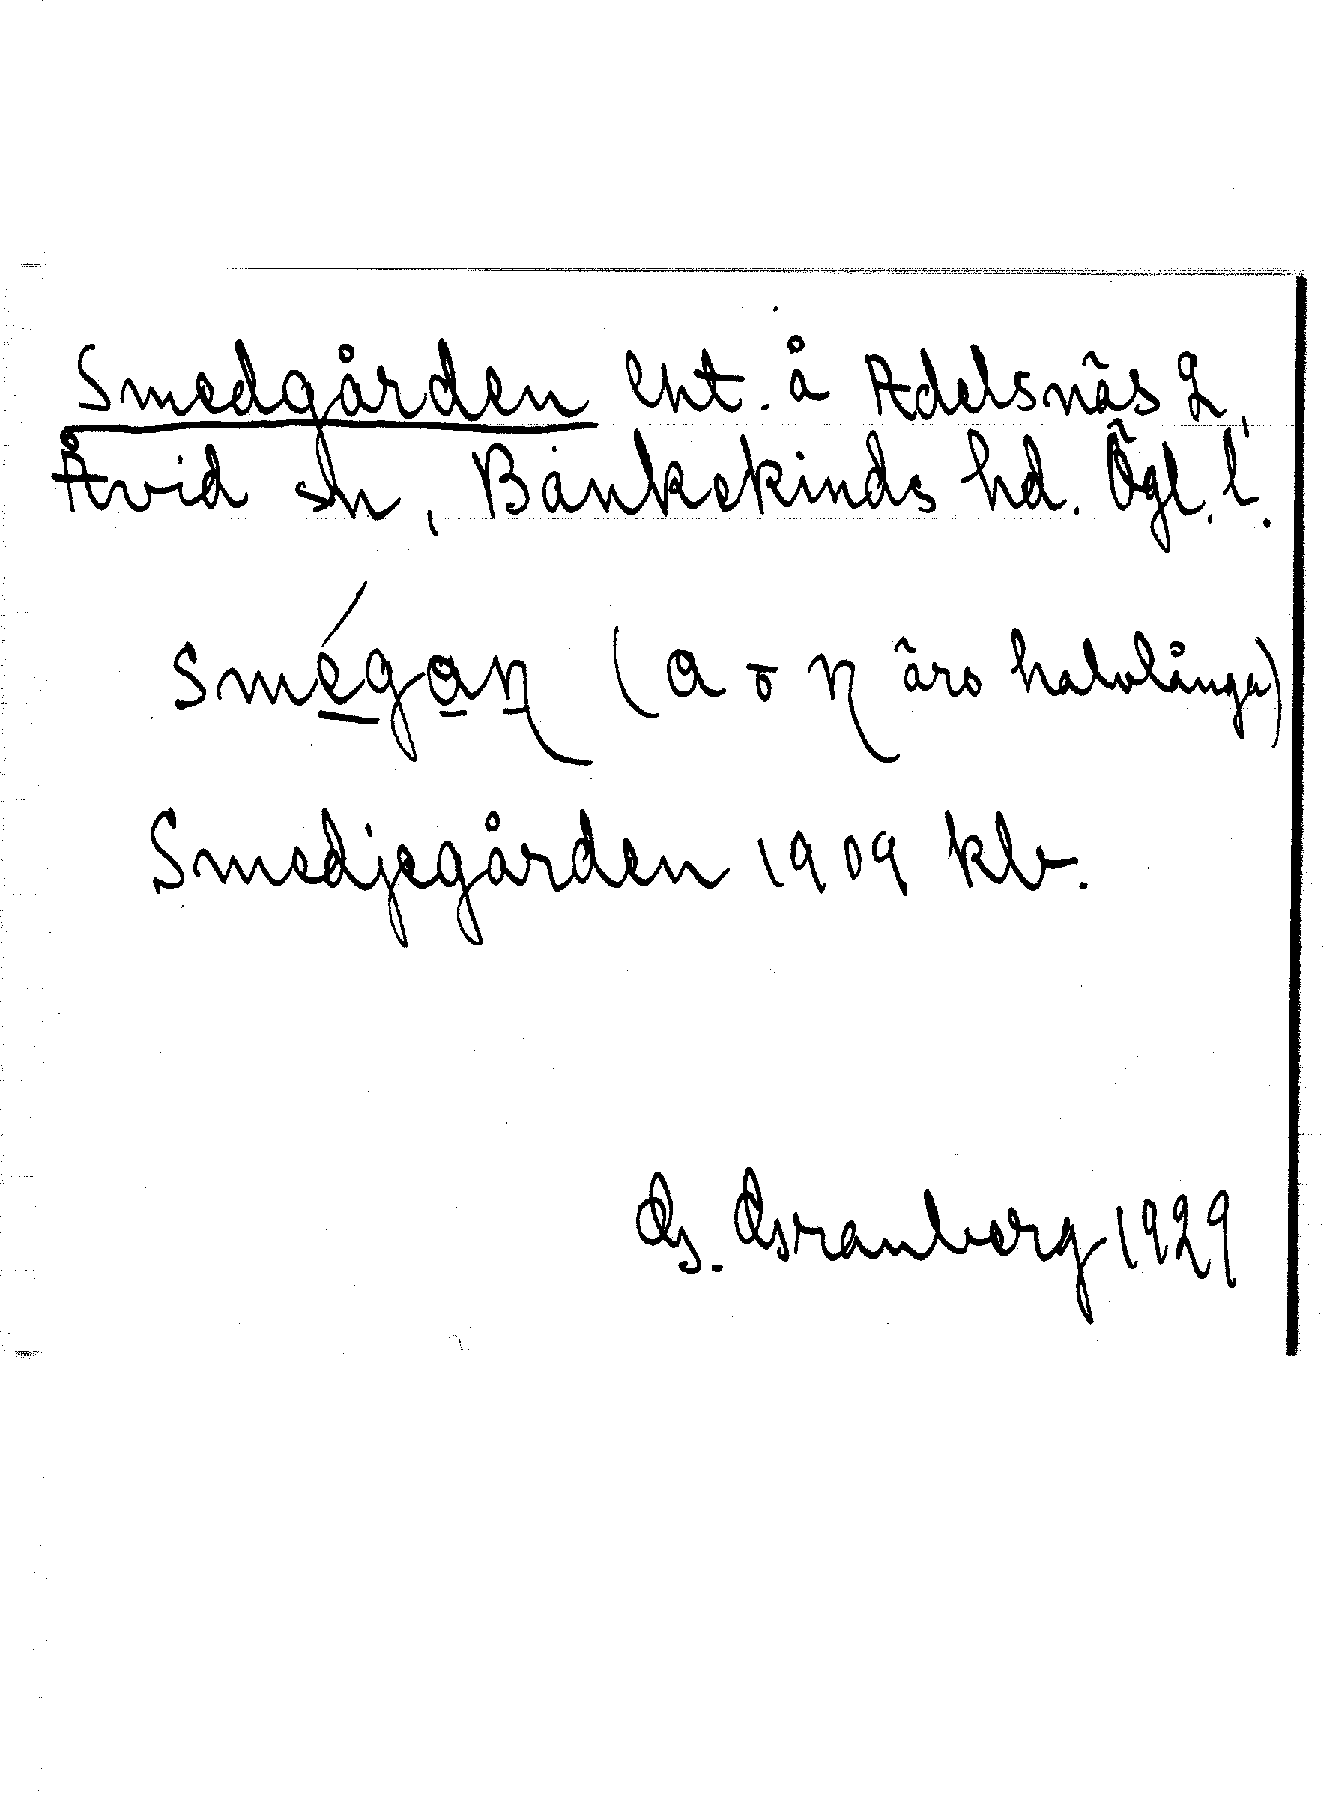 Smedgården lht. å Adelsnäs 2,
Åvid sn, Bankekinds hd. Ögl. l.
Smégaɳ (a o ɳ äro halvlånga)
Smedjegården 1909 kb.
G. Granberg 1929